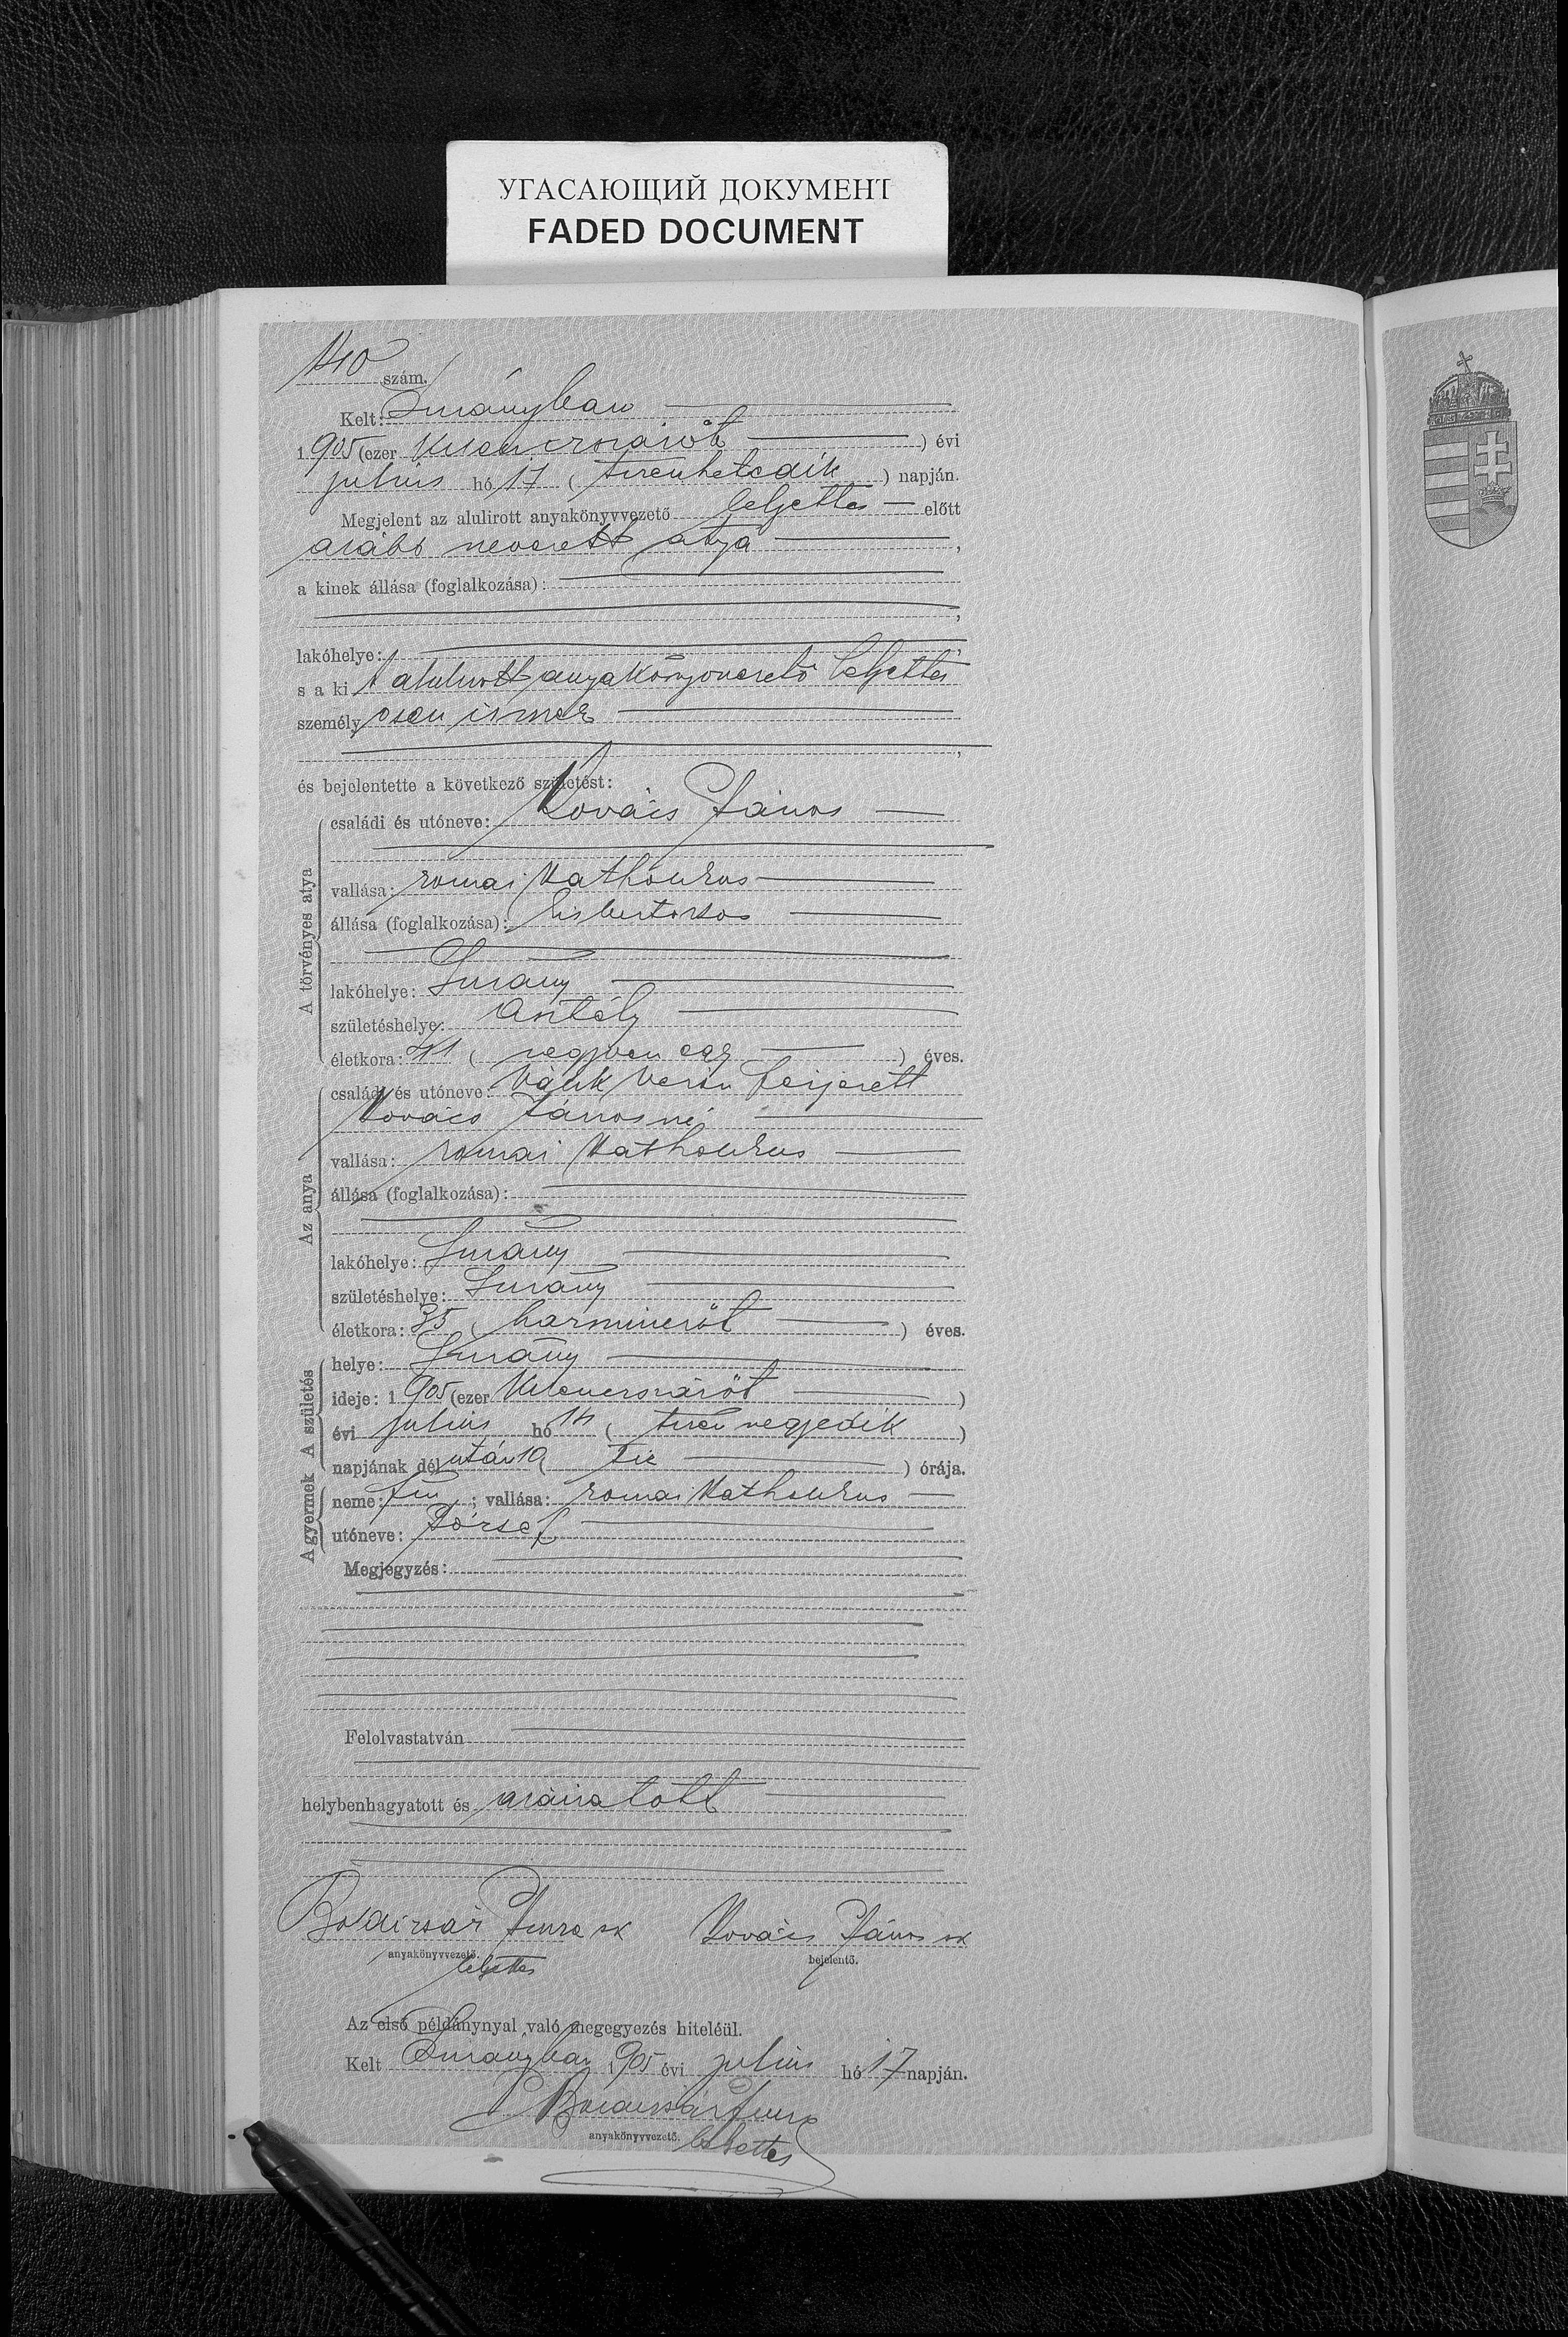 УГАСАЮЩИЙ ДОКУМЕНТ
FADED DOCUMENT
140 szám.
Kelt: Surányban
1905 (ezer kilenczszázöt ) évi
julius hó 17 ( tizenhetedik ) napján.
Megjelent az alulirott anyakönyvvezető helyettes előtt
alább nevezett atya ,
a kinek állása (foglalkozása):
,
lakóhelye:
s a ki t alulirott anyakönyvvezető helyettes
személy esen ismer
,
és bejelentette a következő születést:
A törvényes atya
családi és utóneve: Kovács János
vallása: romai katholikus
állása (foglalkozása): kisbirtokos
lakóhelye: Surány
születéshelye:
életkora: 41 ( negyven egy ) éves.
Az anya
családi és utóneve: Valik Veron férjezett
Kovács Jánosné
vallása: romai katholikus
állása (foglalkozása):
lakóhelye: Surány
születéshelye: Surány
életkora: 35 ( harminczöt ) éves.
A születés
helye: Surány
ideje: 1905 (ezer kilenczszázöt )
évi julius hó 14 ( tizennegyedik )
napjának dél után 10 ( tiz ) órája.
A gyermek
neme: fiu ; vallása: romai katholikus
utóneve: József
Megjegyzés:
Felolvastatván
helybenhagyatott és aláiratott
Boldizsár Imre sk Kovács János sk
anyakönyvvezető. bejelentő.
helyettes
Az első példánynyal való megegyezés hiteléül.
Kelt Surányban 1905 évi julius hó 17 napján.
Boldizsár Imre
anyakönyvvezető. helyettes